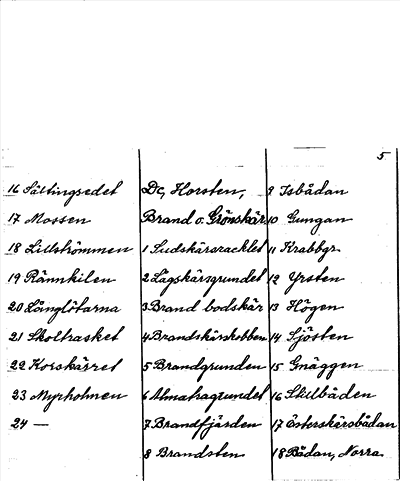 5
16 Sältingsedet
17 Mossen
18 Lillströmmen
19 Rännkilen
20 Långlötarna
21 Skolträsket
22 Korskärret
23 Myrholmen
24 —
Dg, Horsten,
Brand o. Grönskär
1 Sudskärsracklet
2 Lågskärsgrundet
3 Brand bodskär
4 Brandskärskobben
5 Brandgrunden
6 Almahagrundet
7 Brandfjärden
8 Brandsten
9 Isbådan
10 Gungan
11 Krabbgr.
12 Yrsten
13 Högen
14 Sjösten
15 Gnäggen
16 Skilbåden
17 Österskärsbådan
18 Bådan, Norra